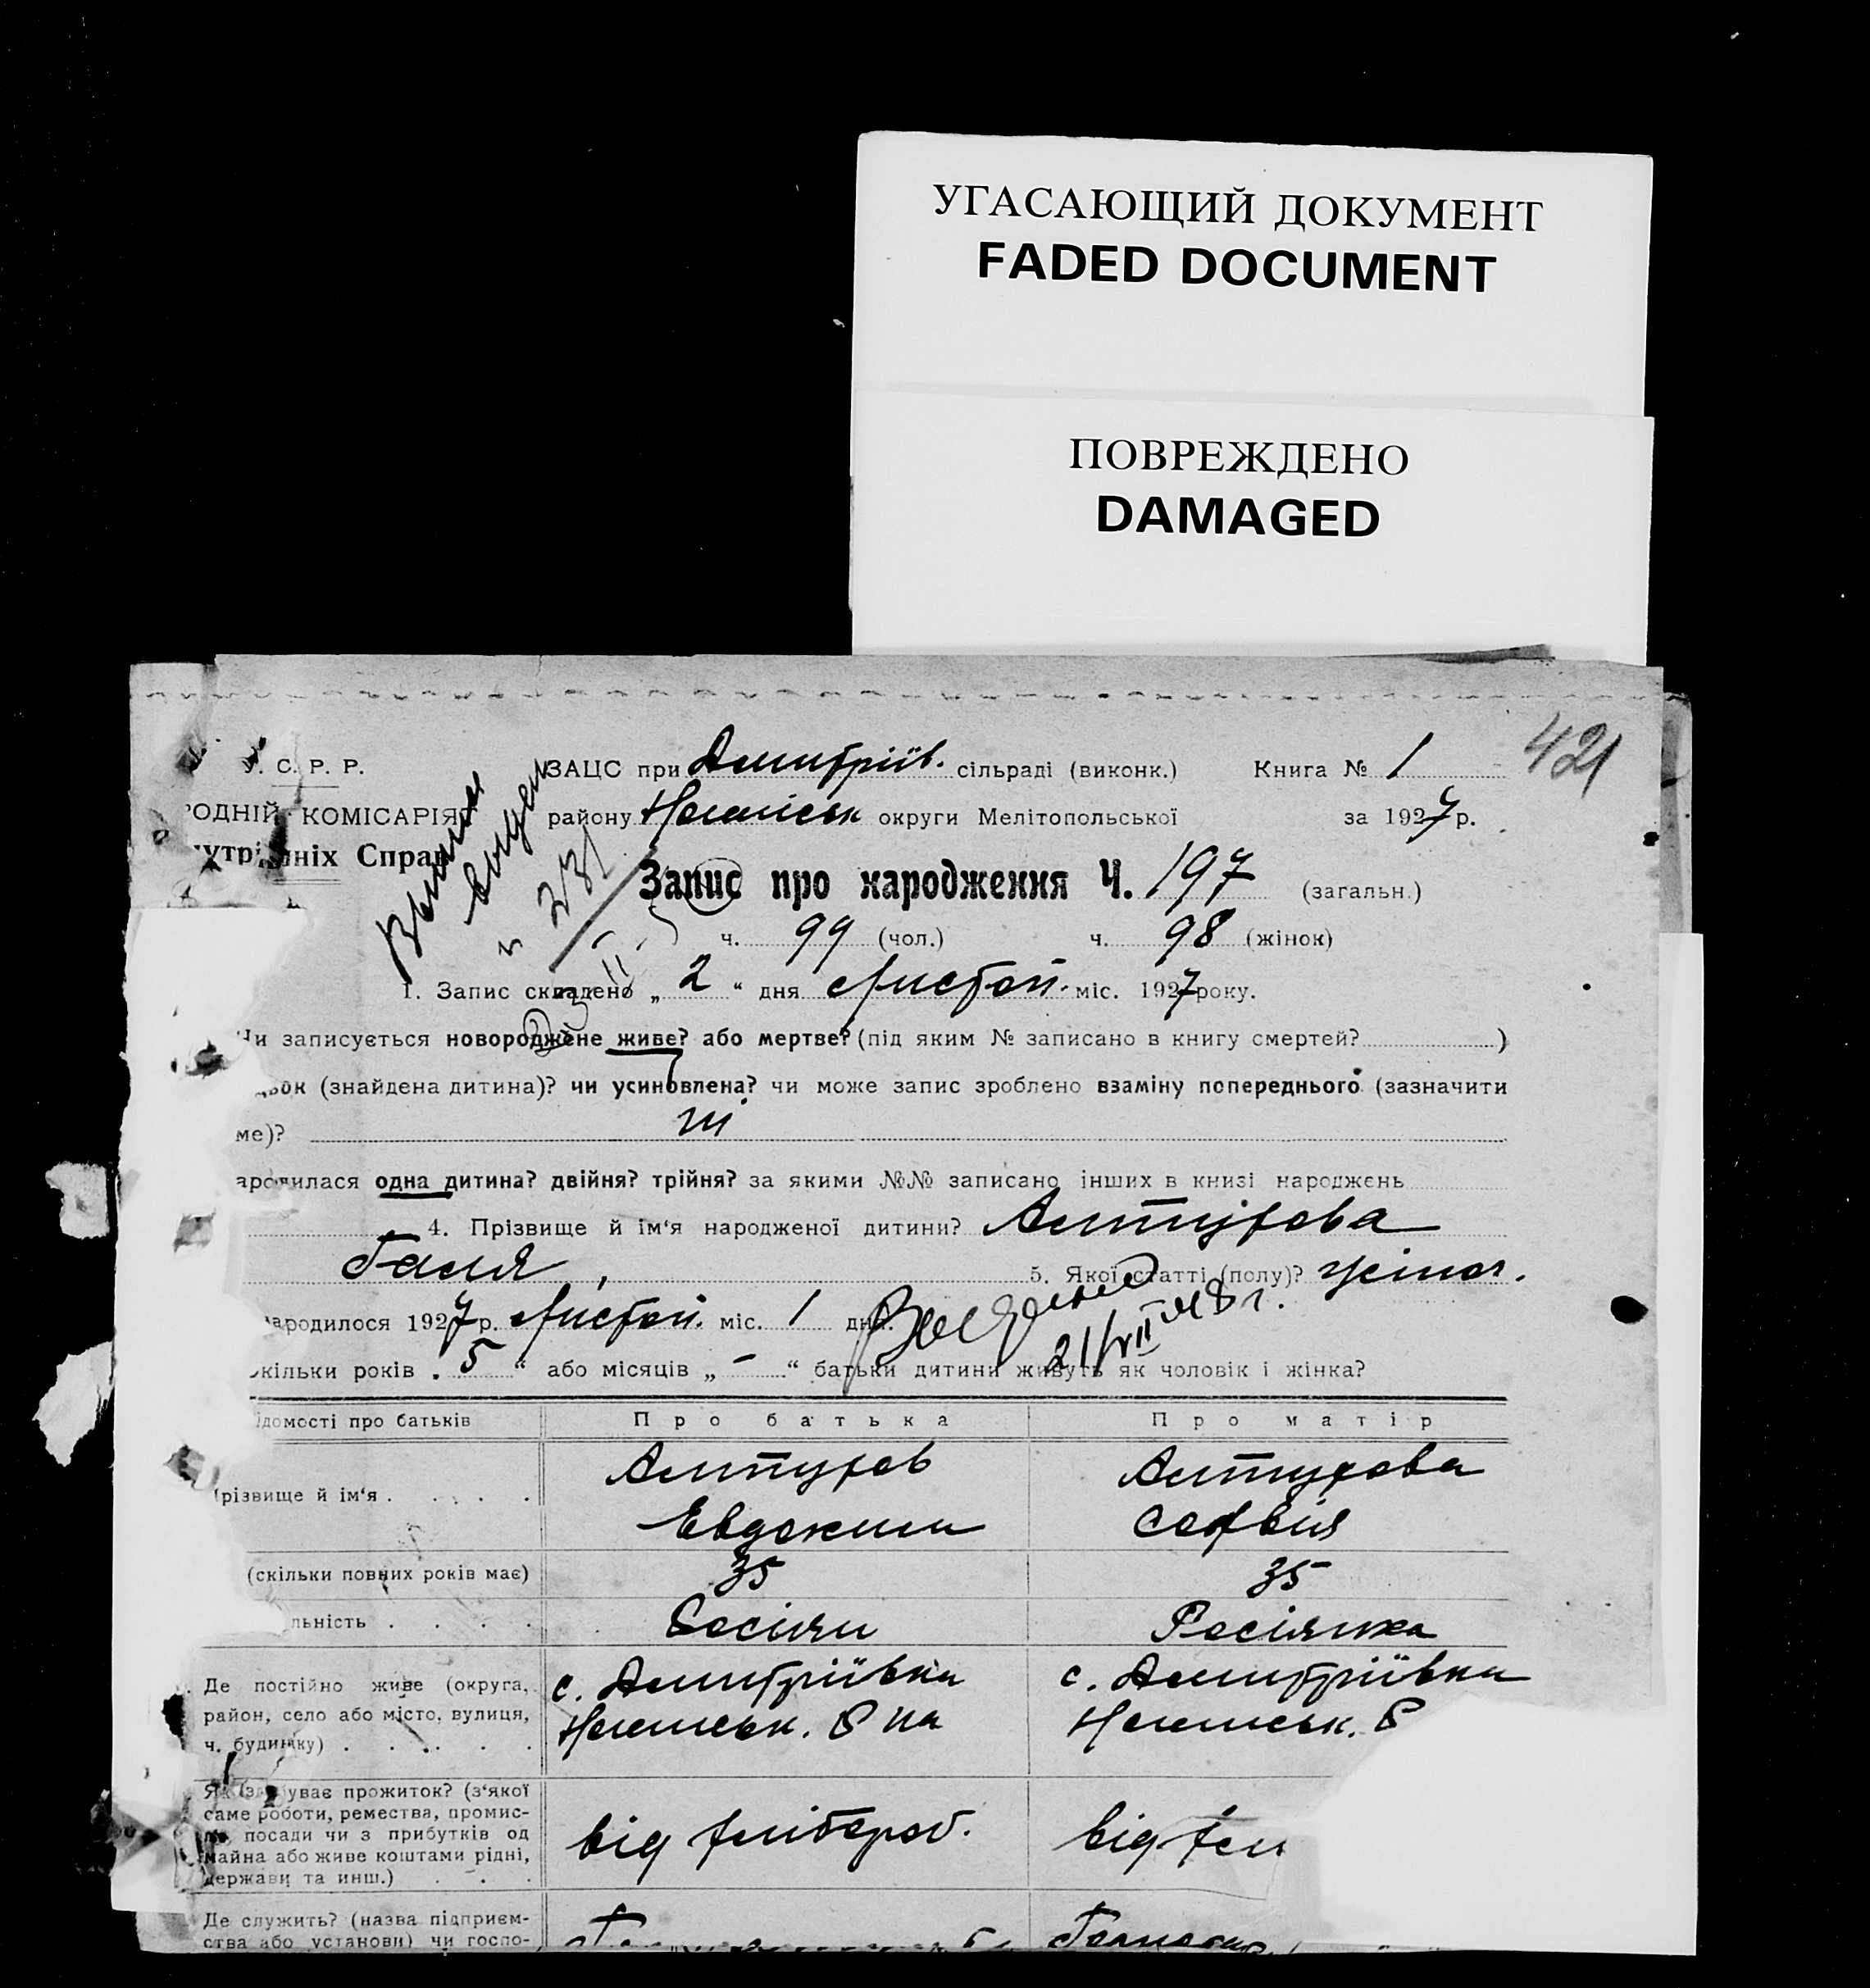 УГАСАЮЩИЙ ДОКУМЕНТ
FADED DOCUMENT
ПОВРЕЖДЕНО
DAMAGED
421
У. С. Р. Р.
ЗАЦС при Дмитріїв. сільраді (виконк.) Книга № 1
РОДНІЙ КОМІСАРІЯ
району округи Мелітопольської за 1927 р.
нутрішніх Справ
231
Запис про народження Ч. 197 (загальн.)
ч. 99 (чол.) ч. 98 (жінок)
1. Запис складено „ 2 “ дня Листоп. міс. 1927 року.
Чи записується новороджене живе? або мертве? (під яким № записано в книгу смертей? )
док (знайдена дитина)? чи усиновлена? чи може запис зроблено взаміну попереднього (зазначити
ме)? ні
ародилася одна дитина? двійня? трійня? за якими №№ записано інших в книзі народжень
4. Прізвище й ім‘я народженої дитини?
Галя 5. Якої статті (полу)? жіноч.
ародилося 1927 р. Листоп. міс. 1 дня.
21/VII 48 г.
кільки років „ 5 “ або місяців „ – “ батьки дитини живуть як чоловік і жінка?
ідомості про батьків Про батька Про матір
різвище й ім‘я . . . . .
Евдоким Софвія
(скільки повних років має) 35 35
льність . . . . Росіян Росіянка
Де постійно живе (округа, район, село або місто, вулиця, ч. будинку) . . . . . .
с. Дмитріївка с. Дмитріївка
Як здобуває прожиток? (з‘якої
саме роботи, ремества, промис-
лу, посади чи з прибутків од
майна або живе коштами рідні,
держави та инш.) . . .
від хлібороб. від хлі
Де служить? (назва підприєм-
ства або установи) чи госпо-